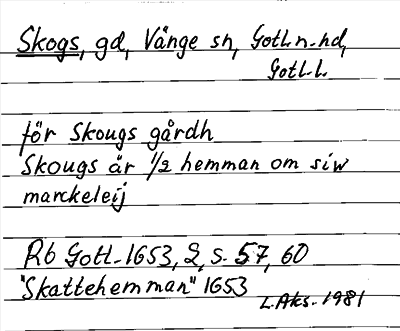 Skogs, gd, Vänge sn, Gotl. n. hd,
Gotl. l.
för Skougs gårdh
Skougs är 1/2 hemman om siw
marckeleij
Rb Gotl. 1653, 2, s. 57, 60
"Skattehemman" 1653
L. Aks. 1981